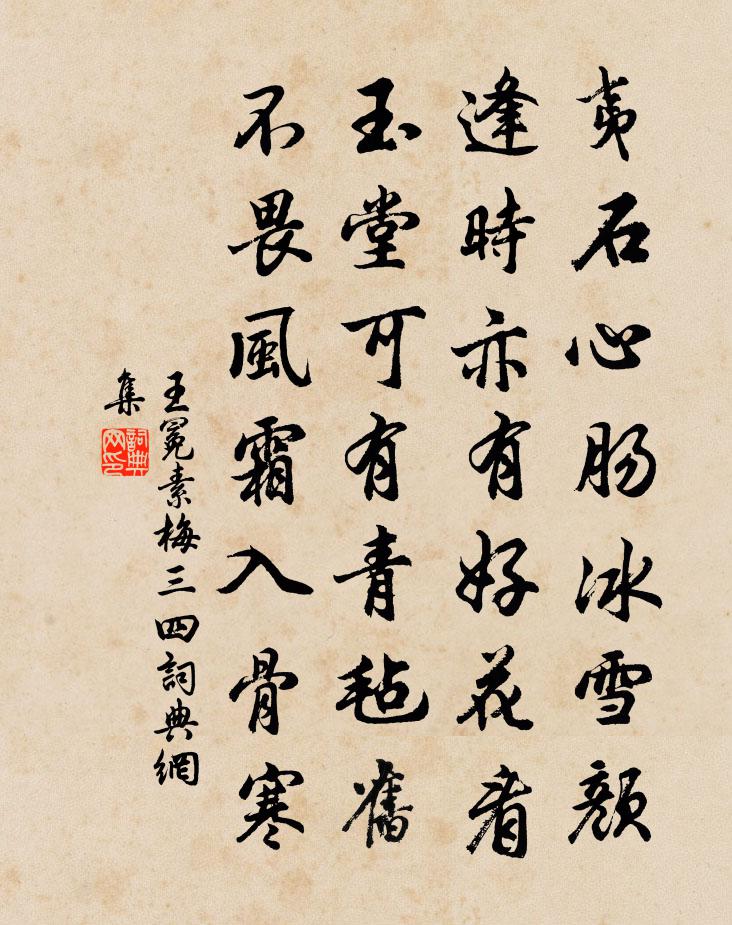 夷石心腸冰雪顏
逢時亦有好花看
玉堂可有青毡舊
不畏風霜入骨寒
王冕素梅三四詞典網
集
詞典
网印